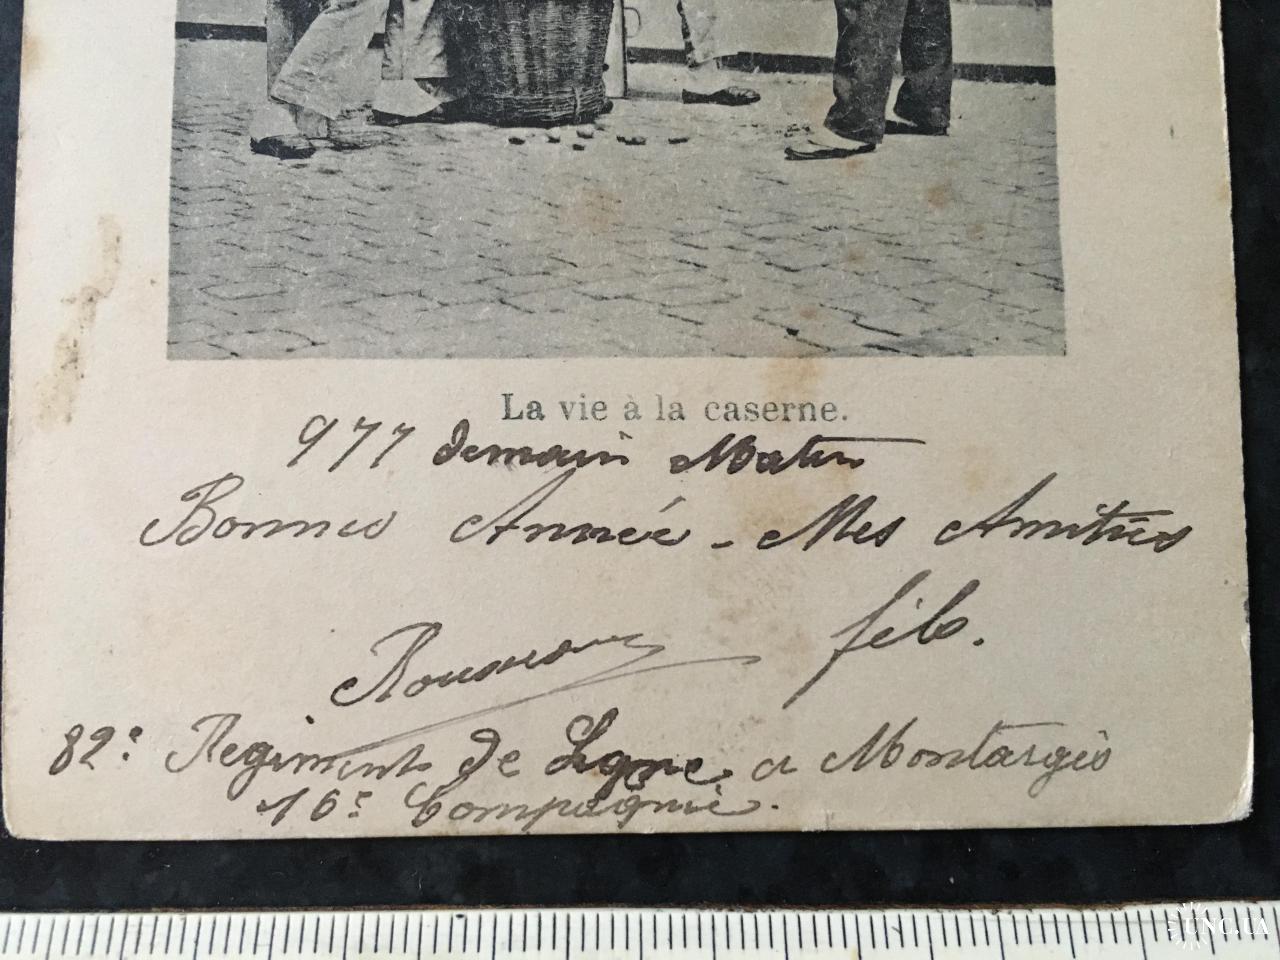 La vie à la caserne.
977 demain Matin
Bonnes Année - Mes Amitiés
fils.
82e Regiment de Ligne a Montargis
16e Compagnie.
UNC.UA